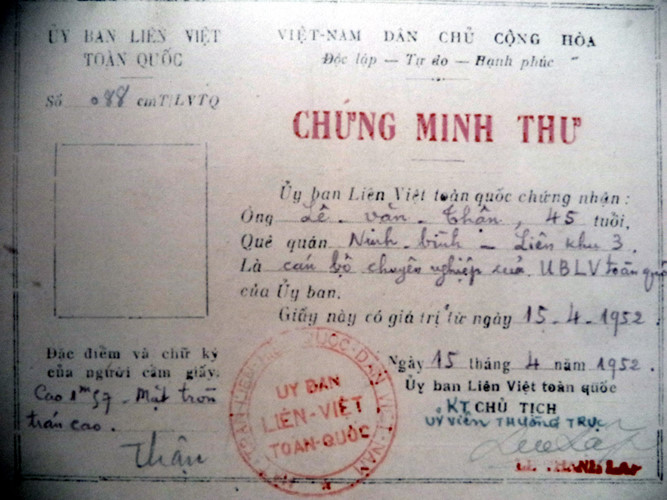 ỦY BAN LIÊN VIỆT
TOÀN QUỐC
Số 088 cmT/LVTQ
VIỆT-NAM DÂN CHỦ CỘNG HÒA
Độc lập — Tự do — Hạnh phúc
CHỨNG MINH THƯ
Ủy ban Liên Việt toàn quốc chứng nhận :
Ông Lê - văn - Thận, 45 tuổi.
Quê quán Ninh - bình — Liên khu 3.
Là cán bộ chuyên nghiệp của UBLV toàn quốc
của Ủy ban.
Giấy này có giá trị từ ngày 15-4-1952
Đặc điểm và chữ ký
của người cầm giấy.
Cao 1m57 - Mặt tròn
trán cao.
Thận
Ngày 15 tháng 4 năm 1952.
Ủy ban Liên Việt toàn quốc
KT CHỦ TỊCH
ỦY VIÊN THƯỜNG TRỰC
ỦY BAN
LIÊN-VIỆT
TOÀN-QUỐC